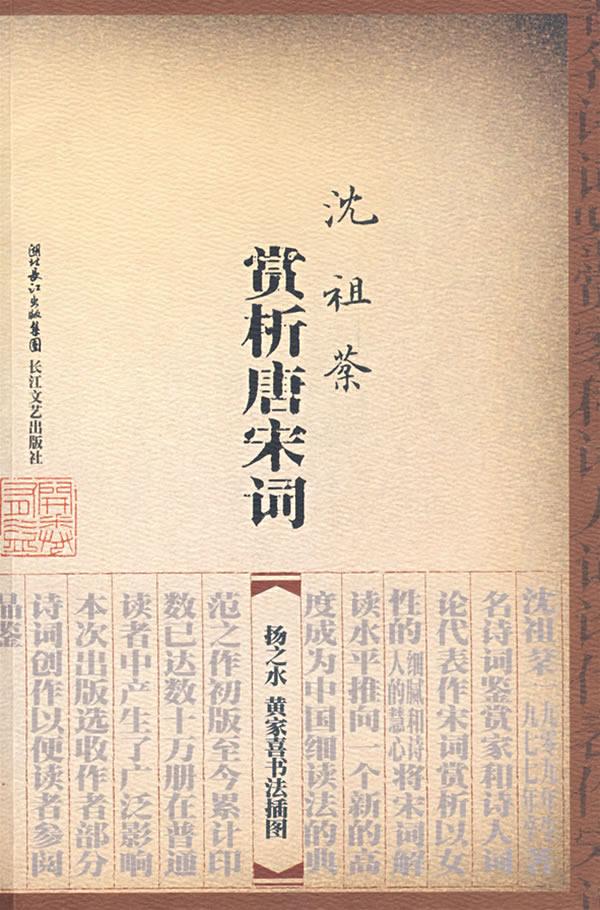 沈祖棻
赏析唐宋词
湖北长江出版集团
长江文艺出版社
开卷有益
扬之水 黄家喜书法插图
名诗词鉴赏家和诗人词
论代表作宋词赏析以女
性的细腻和诗人的慧心将宋词解
读水平推向一个新的高
度成为中国细读法的典
范之作初版至今累计印
数已达数十万册在普通
读者中产生了广泛影响
本次出版选收作者部分
诗词创作以便读者参阅
品鉴